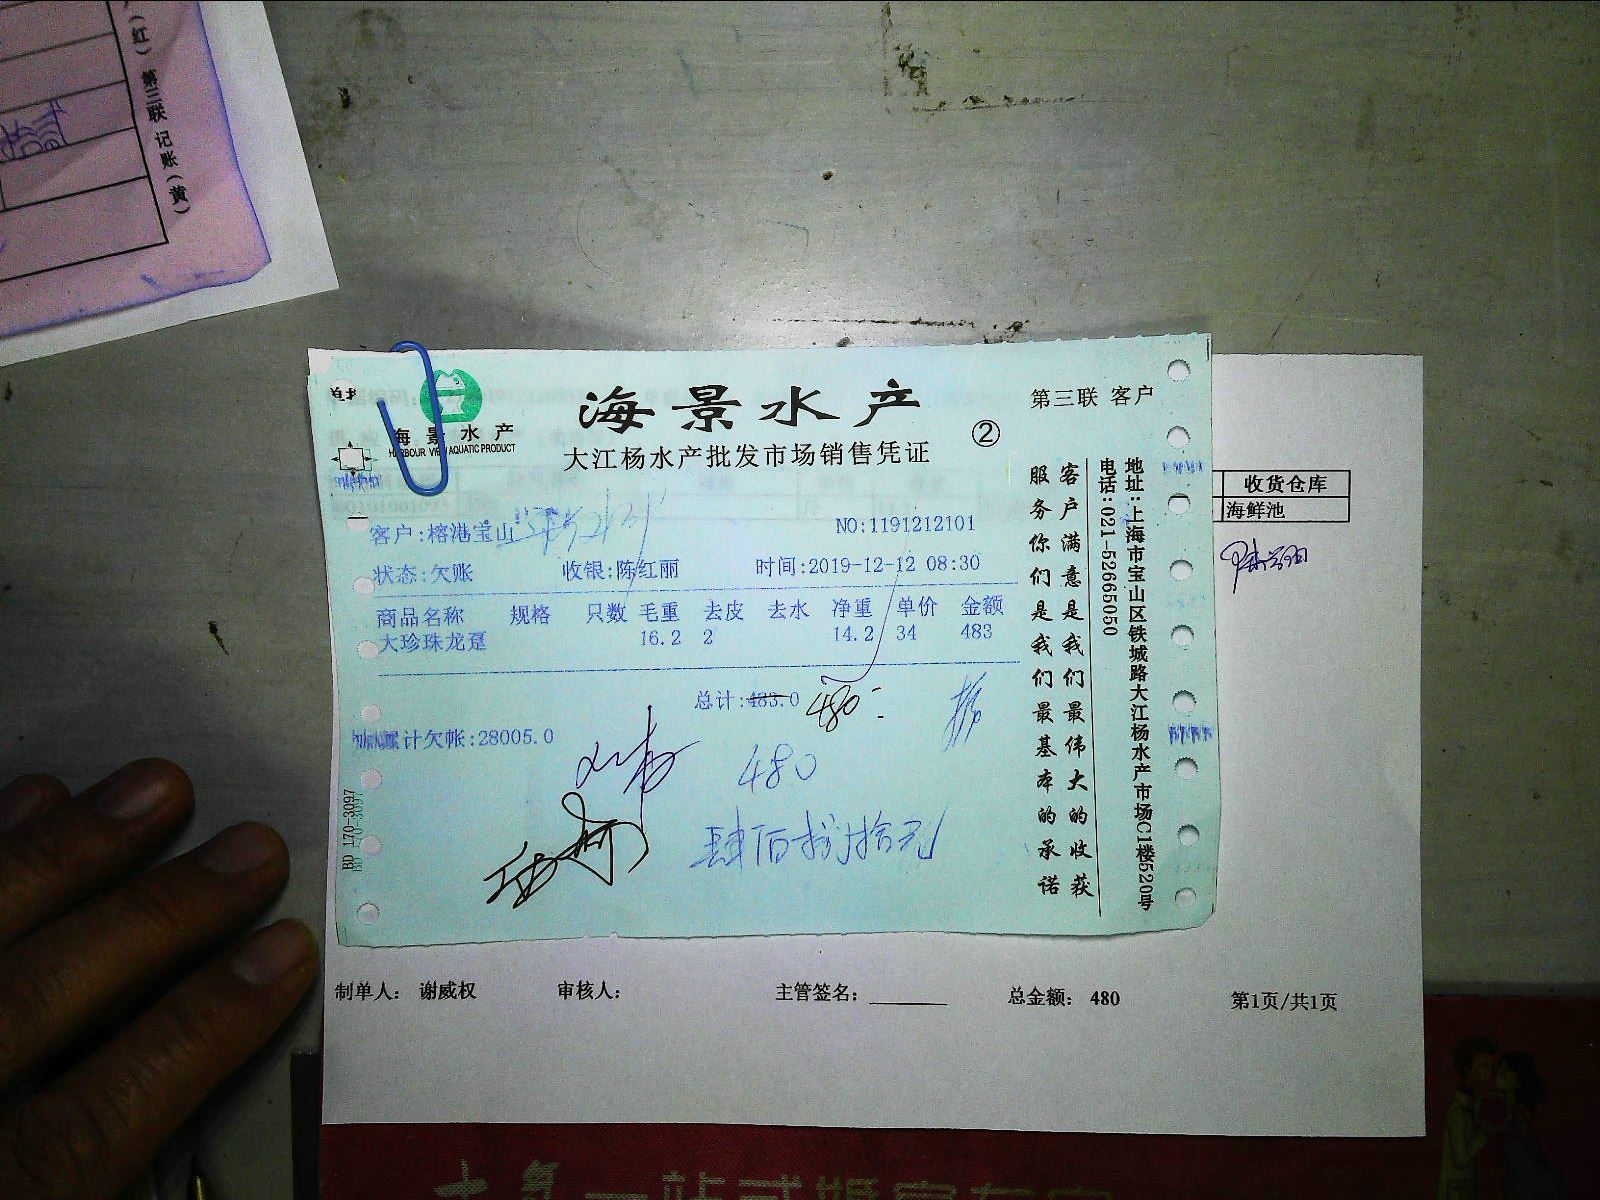 （红）
第三联 记账（黄）
海景水产
HARBOUR VIEW AQUATIC PRODUCT
海景水产
大江杨水产批发市场销售凭证
②
第三联 客户
客户:榕港宝山
NO:1191212101
状态:欠账 收银:陈红丽 时间:2019-12-12 08:30
商品名称 规格 只数 毛重 去皮 去水 净重 单价 金额
大珍珠龙趸 16.2 2 14.2 34 483
总计:483.0 480
累计欠帐:28005.0
480
肆佰捌拾元
BD 170-3097
客户满意是我们最伟大的收获
服务你们是我们最基本的承诺
地址:上海市宝山区铁城路大江杨水产市场C1楼520号
电话:021-52665050
收货仓库
海鲜池
制单人: 谢威权 审核人: 主管签名: 总金额: 480 第1页/共1页